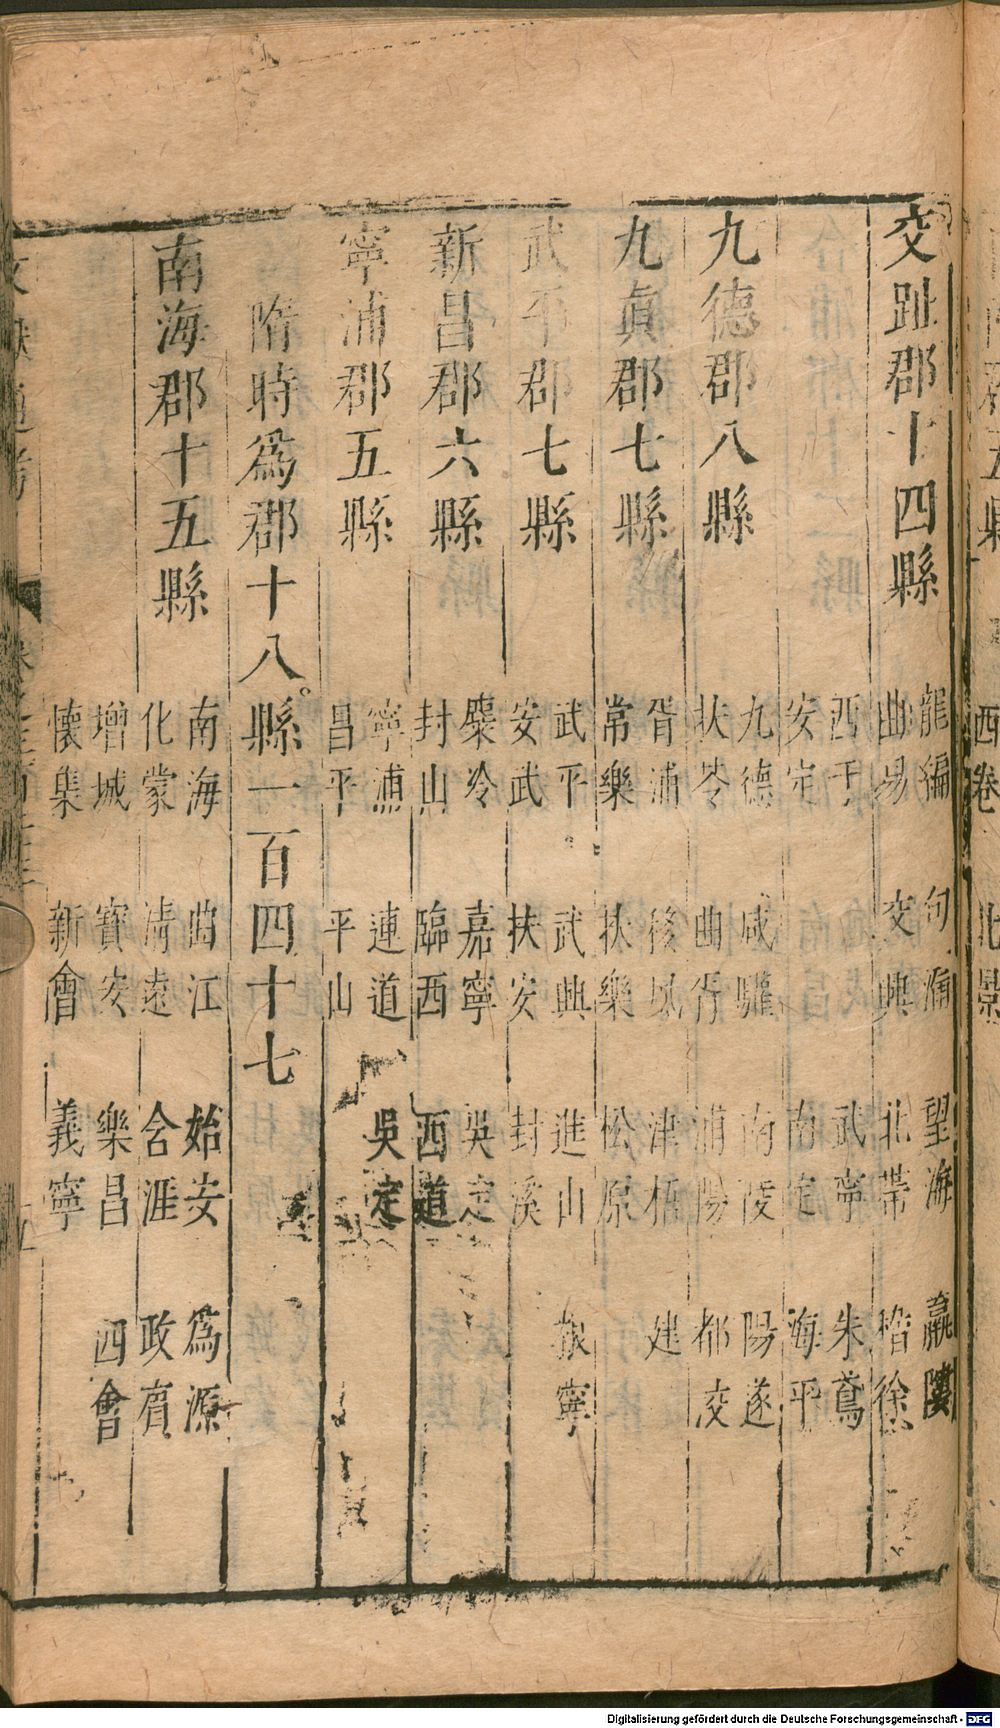 交趾郡十四縣
龍編 句漏 望海 𨏥𨻻
曲昜 交興 北帶 稽徐
西于 武寧 朱鳶
安定 南定 海平
九德郡八縣
九德 咸驩 南陵 陽遂
扶苓 曲胥 浦陽 都洨
九眞郡七縣
胥浦 移風 津梧 建
常樂 扶樂 松原
武平郡七縣
武平 武興 進山 根寧
安武 扶安 封溪
新昌郡六縣
麋泠 嘉寧 吳定
封山 臨西 西道
寧浦郡五縣
寧浦 連道 吳定
昌平 平山
隋時爲郡十八。縣一百四十七
南海郡十五縣
南海 曲江 始安 爲源
化蒙 清遠 含洭 政賔
增城 寶安 樂昌 四會
懐集 新會 義寧
Digitalisierung gefördert durch die Deutsche Forschungsgemeinschaft - DFG